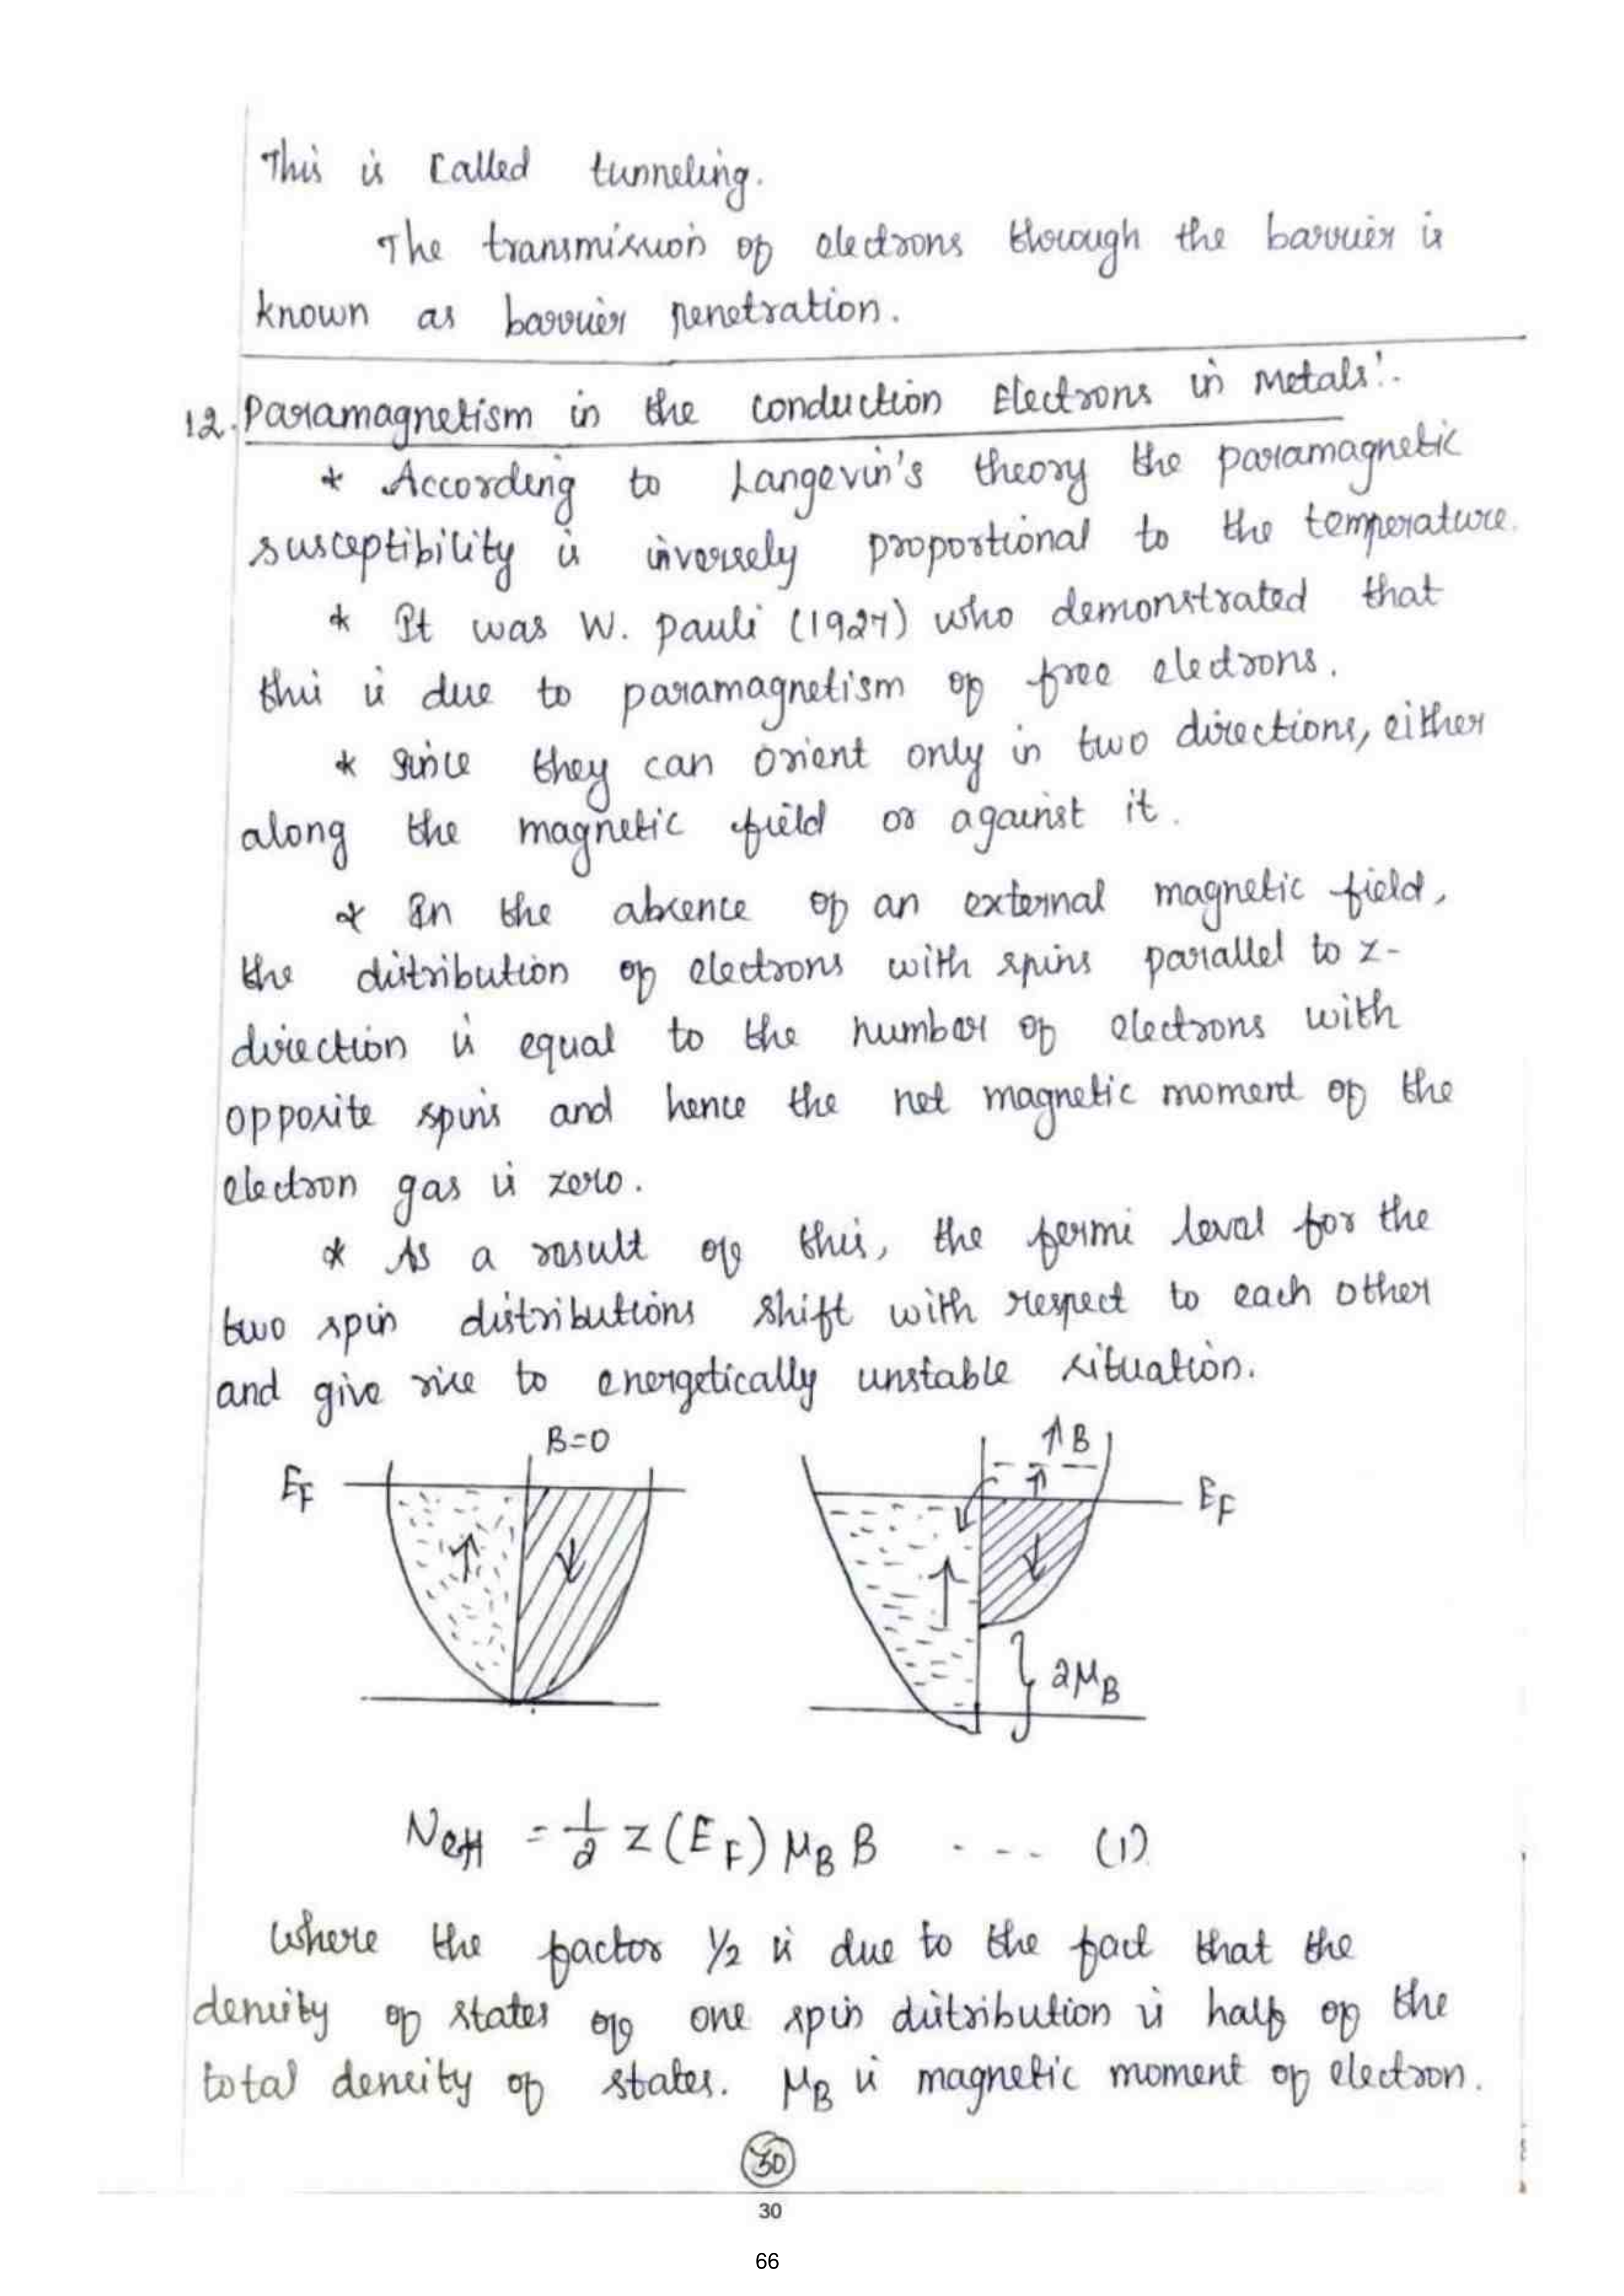 This is called tunneling.
The transmission of electrons through the barrier is
known as barrier penetration.
12. Paramagnetism in the conduction Electrons in Metals:-
* According to Langevin's theory the paramagnetic
susceptibility is inversely proportional to the temperature.
* It was W. Pauli (1927) who demonstrated that
this is due to paramagnetism of free electrons.
* Since they can orient only in two directions, either
along the magnetic field or against it.
* In the absence of an external magnetic field,
the distribution of electrons with spins parallel to z-
direction is equal to the number of electrons with
opposite spins and hence the net magnetic moment of the
electron gas is zero.
* As a result of this, the fermi level for the
two spin distributions shift with respect to each other
and give rise to energetically unstable situation.
B=0
↑B
E_F
E_F
2μ_B
N_eff = 1/2 z(E_F) μ_B B - - - - (1)
Where the factor 1/2 is due to the fact that the
density of states of one spin distribution is half of the
total density of states. μ_B is magnetic moment of electron.
30
30
66